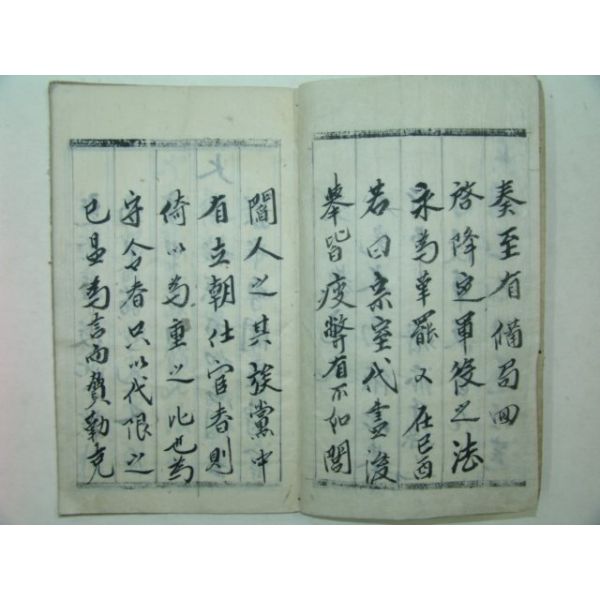 奏至有備局回
啓降定軍役之法
永為革罷又在己酉
若曰宗室代盡後
擧皆疲弊有不如閭
閻人之其族黨中
有立朝仕官者則
倚以為重之此也為
守令者只以代限之
已是為言而費勒充